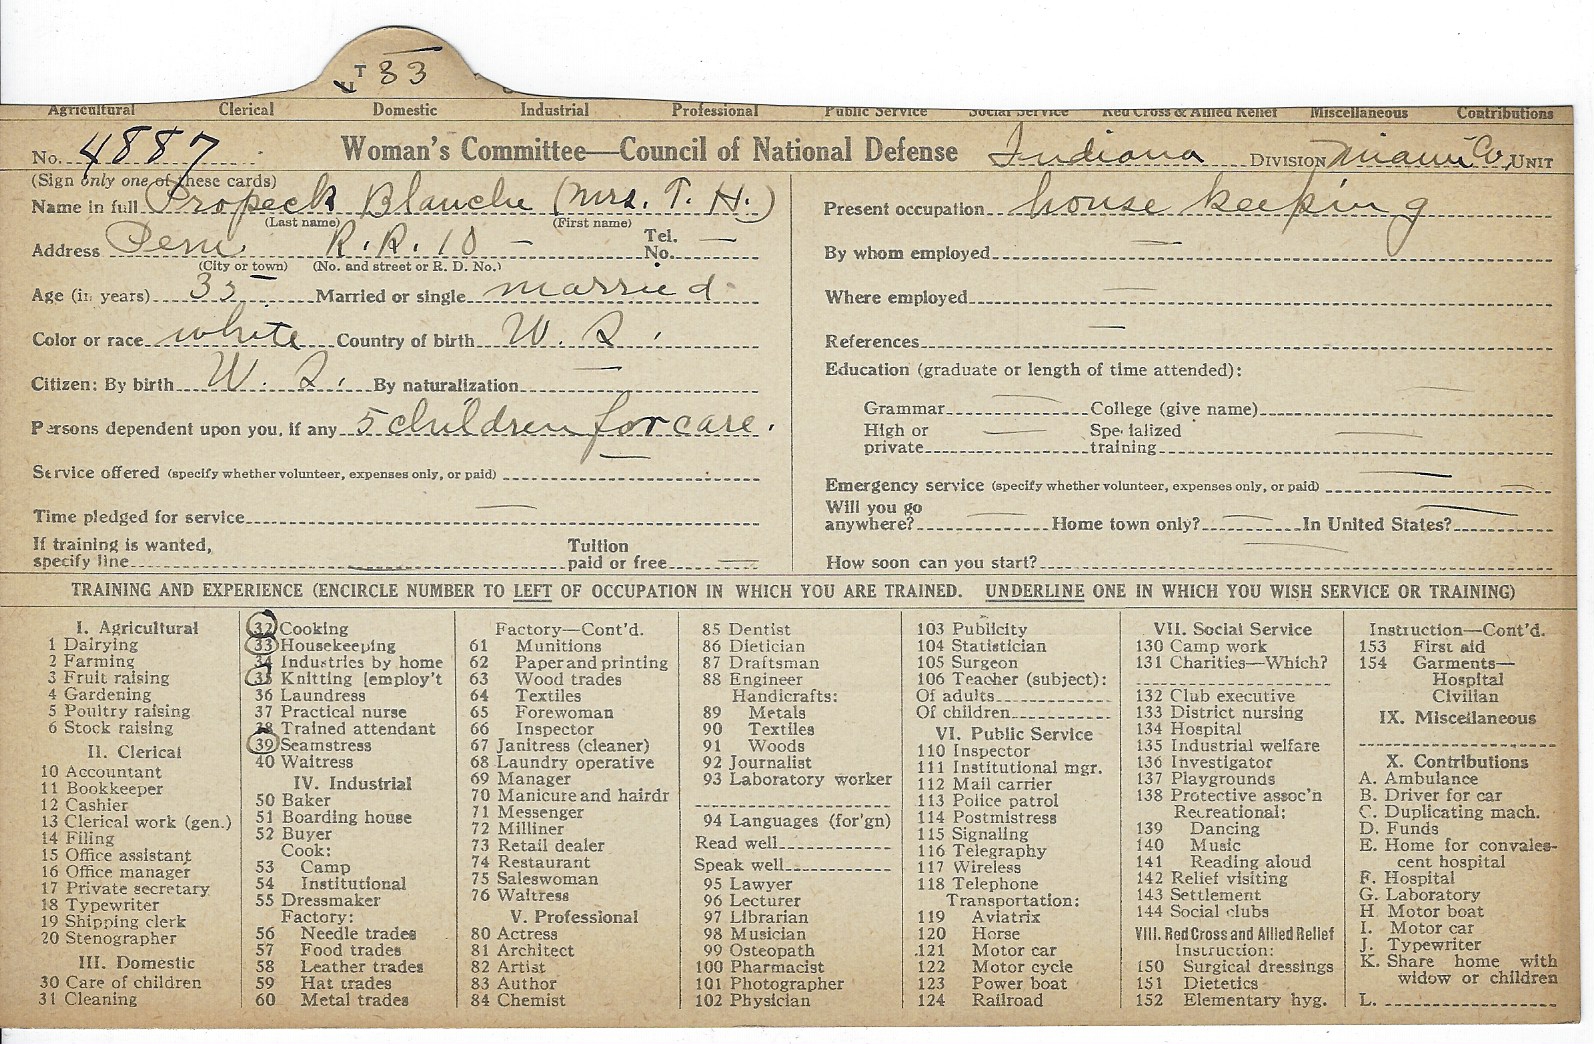 T 33
Agricultural Clerical Domestic Industrial Professional Public Service Social Service Red Cross & Allied Relief Miscellaneous Contributions
No. 4887 Woman's Committee—Council of National Defense Indiana DIVISION Miami Co. UNIT
(Sign only one of these cards)
Name in full Propeck Blanche (Mrs. T. H.)
(Last name) (First name)
Address Peru. R. R. 10 — Tel. No. —
(City or town) (No. and street or R. D. No.)
Age (in years) 35 Married or single married
Color or race white Country of birth U. S.
Citizen: By birth U. S. By naturalization —
Persons dependent upon you, if any 5 children for care.
Service offered (specify whether volunteer, expenses only, or paid) —
Time pledged for service —
If training is wanted, specify line — Tuition paid or free —
Present occupation house keeping
By whom employed —
Where employed —
References —
Education (graduate or length of time attended):
Grammar — College (give name) —
High or private — Specialized training —
Emergency service (specify whether volunteer, expenses only, or paid) —
Will you go anywhere? — Home town only? — In United States? —
How soon can you start? —
TRAINING AND EXPERIENCE (ENCIRCLE NUMBER TO LEFT OF OCCUPATION IN WHICH YOU ARE TRAINED. UNDERLINE ONE IN WHICH YOU WISH SERVICE OR TRAINING)
I. Agricultural
1 Dairying
2 Farming
3 Fruit raising
4 Gardening
5 Poultry raising
6 Stock raising
II. Clerical
10 Accountant
11 Bookkeeper
12 Cashier
13 Clerical work (gen.)
14 Filing
15 Office assistant
16 Office manager
17 Private secretary
18 Typewriter
19 Shipping clerk
20 Stenographer
III. Domestic
30 Care of children
31 Cleaning
32 Cooking
33 Housekeeping
34 Industries by home
35 Knitting [employ't
36 Laundress
37 Practical nurse
38 Trained attendant
39 Seamstress
40 Waitress
IV. Industrial
50 Baker
51 Boarding house
52 Buyer
Cook:
53 Camp
54 Institutional
55 Dressmaker
Factory:
56 Needle trades
57 Food trades
58 Leather trades
59 Hat trades
60 Metal trades
Factory—Cont'd.
61 Munitions
62 Paper and printing
63 Wood trades
64 Textiles
65 Forewoman
66 Inspector
67 Janitress (cleaner)
68 Laundry operative
69 Manager
70 Manicure and hairdr
71 Messenger
72 Milliner
73 Retail dealer
74 Restaurant
75 Saleswoman
76 Waitress
V. Professional
80 Actress
81 Architect
82 Artist
83 Author
84 Chemist
85 Dentist
86 Dietician
87 Draftsman
88 Engineer
Handicrafts:
89 Metals
90 Textiles
91 Woods
92 Journalist
93 Laboratory worker
94 Languages (for'gn)
Read well
Speak well
95 Lawyer
96 Lecturer
97 Librarian
98 Musician
99 Osteopath
100 Pharmacist
101 Photographer
102 Physician
103 Publicity
104 Statistician
105 Surgeon
106 Teacher (subject):
Of adults
Of children
VI. Public Service
110 Inspector
111 Institutional mgr.
112 Mail carrier
113 Police patrol
114 Postmistress
115 Signaling
116 Telegraphy
117 Wireless
118 Telephone
Transportation:
119 Aviatrix
120 Horse
121 Motor car
122 Motor cycle
123 Power boat
124 Railroad
VII. Social Service
130 Camp work
131 Charities—Which?
132 Club executive
133 District nursing
134 Hospital
135 Industrial welfare
136 Investigator
137 Playgrounds
138 Protective assoc'n
Recreational:
139 Dancing
140 Music
141 Reading aloud
142 Relief visiting
143 Settlement
144 Social clubs
VIII. Red Cross and Allied Relief
Instruction:
150 Surgical dressings
151 Dietetics
152 Elementary hyg.
Instruction—Cont'd.
153 First aid
154 Garments—
Hospital
Civilian
IX. Miscellaneous
X. Contributions
A. Ambulance
B. Driver for car
C. Duplicating mach.
D. Funds
E. Home for convales-
cent hospital
F. Hospital
G. Laboratory
H. Motor boat
I. Motor car
J. Typewriter
K. Share home with
widow or children
L.